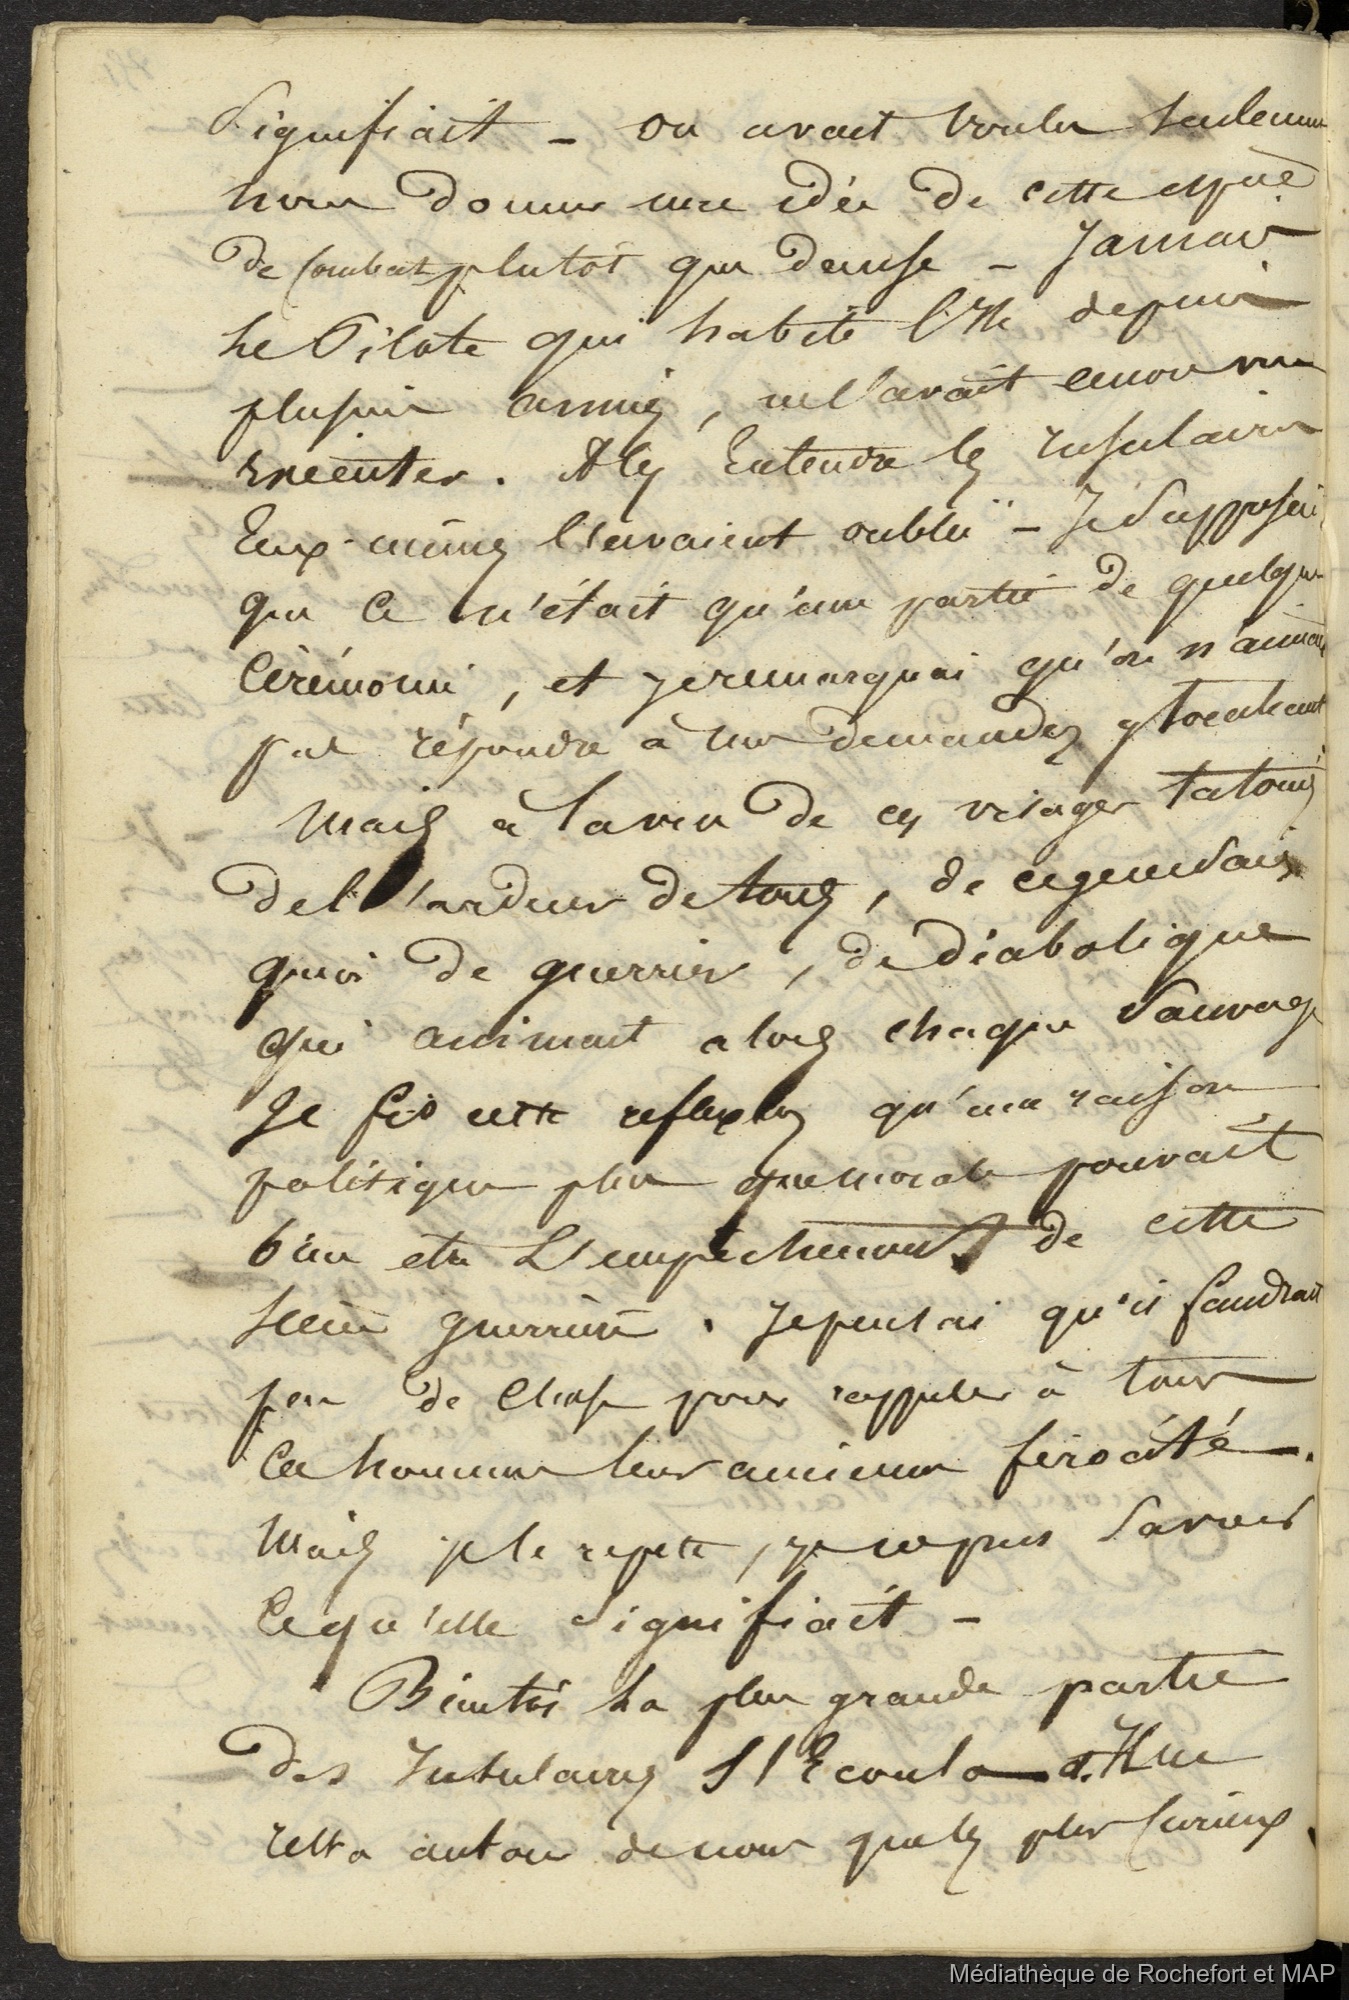 Signifiait - on avait voulu seulement
nous donner une idée de cette espèce
de combat plutôt que danse - Jamais
le Pilote qui habite l'Ile depuis
plusieurs années, ne l'avait encore vu
exécuter. A les Entendre les insulaires
Eux-mêmes l'avaient oublié - Je Supposai
que ce n'était qu'une partie de quelque
Cérémonie, et je remarquai qu'on n'aimait
pas répondre à nos demandes y touchant
Mais à la vue de ces visages tatoués
de l'ardeur de tous, de ce je ne Sais
quoi de guerrier, de diabolique
qui animait alors chaque Sauvage
Je fis cette reflexion qu'une raison
politique plus que morale pouvait
bien etre L'empêchement de cette
scène guerrière. Je pensai qu'il faudrait
peu de Chose pour rappeler à tous
Ces hommes leur ancienne férocité.
Mais je le repete, je ne pus Savoir
Ce qu'elle Signifiait -
Bientôt la plus grande partie
des Insulaires S'Ecoula. Il ne
resta autour de nous que les plus Curieux
Médiathèque de Rochefort et MAP